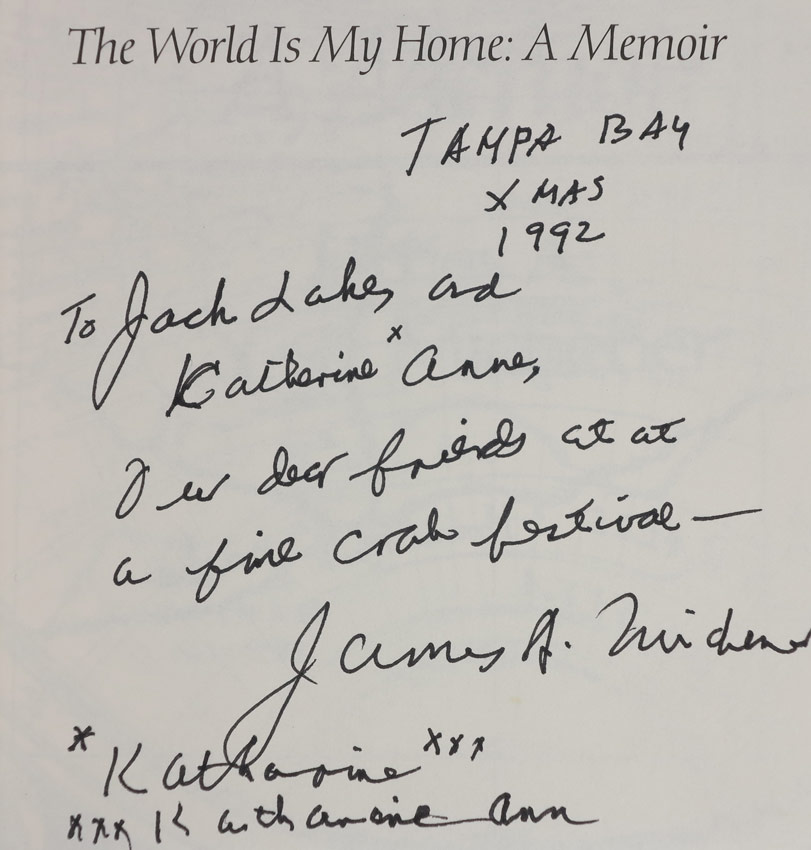 The World Is My Home: A Memoir
TAMPA BAY
X MAS
1992
To Jack Lakes and
Katherine x Anne,
Our dear friends at at
a fine crab festival —
James A. Michener
* Katharine xxx
xxx Katharine Ann